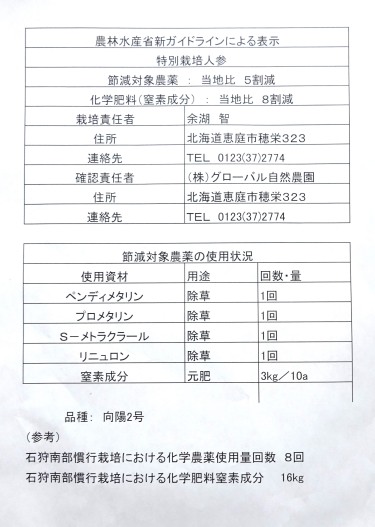 農林水産省新ガイドラインによる表示
特別栽培人参
節減対象農薬 ： 当地比 5割減
化学肥料(窒素成分) ： 当地比 8割減
栽培責任者 余湖 智
住所 北海道恵庭市穂栄323
連絡先 TEL 0123(37)2774
確認責任者 (株)グローバル自然農園
住所 北海道恵庭市穂栄323
連絡先 TEL 0123(37)2774
節減対象農薬の使用状況
使用資材 用途 回数・量
ペンディメタリン 除草 1回
プロメタリン 除草 1回
S－メトラクラール 除草 1回
リニュロン 除草 1回
窒素成分 元肥 3kg／10a
品種： 向陽2号
(参考)
石狩南部慣行栽培における化学農薬使用量回数 8回
石狩南部慣行栽培における化学肥料窒素成分 16kg